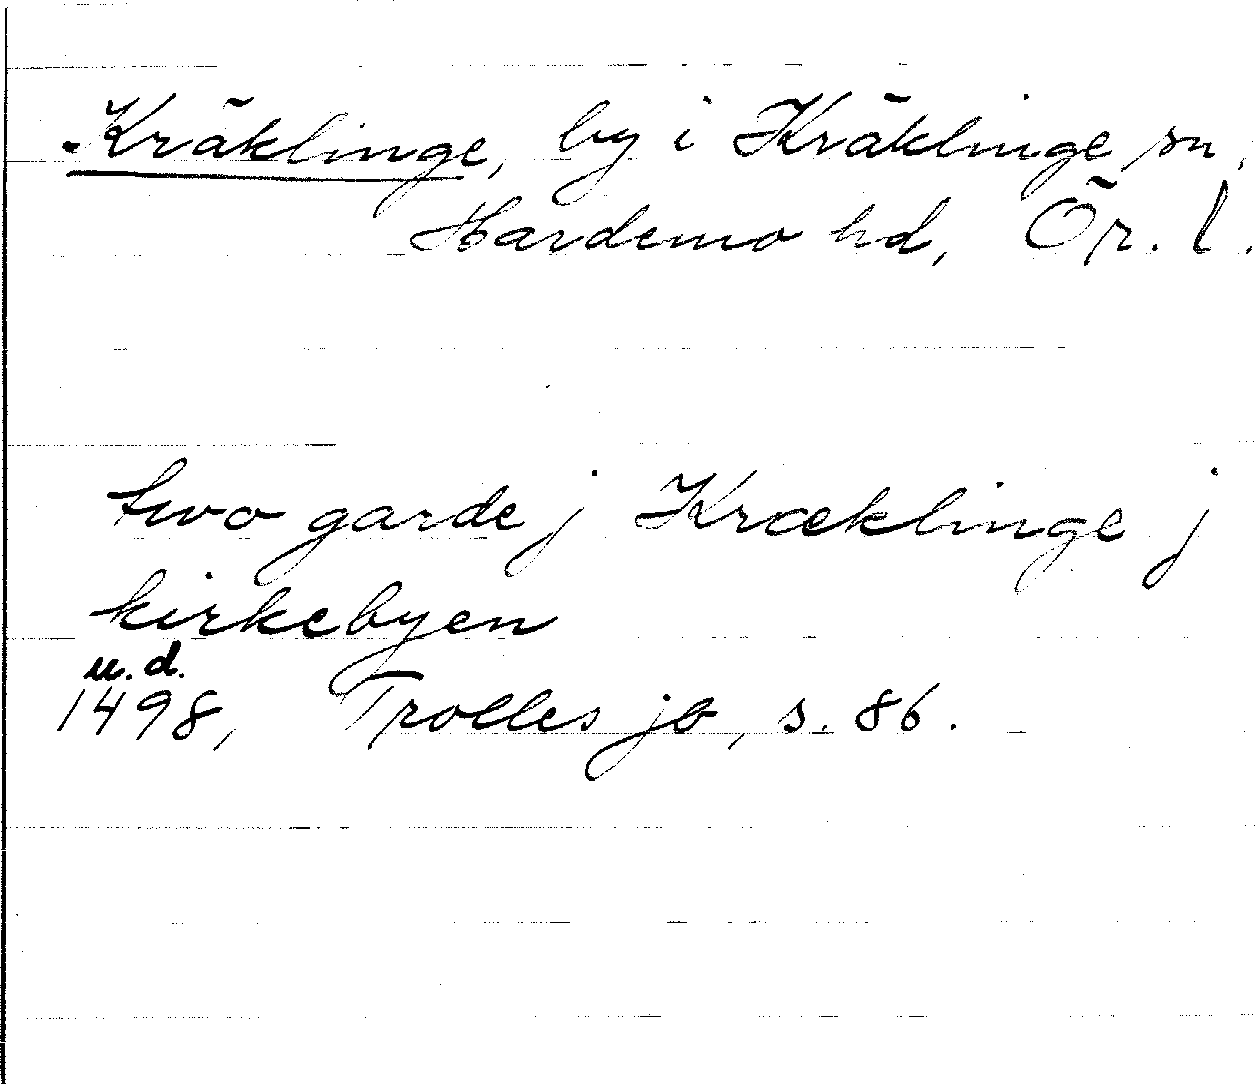 Kräklinge, by i Kräklinge sn,
Hardemo hd, Ör. l.
two garde j Kræklinge j
kirkebyen
u.d.
1498, Trolles jb, s. 86.